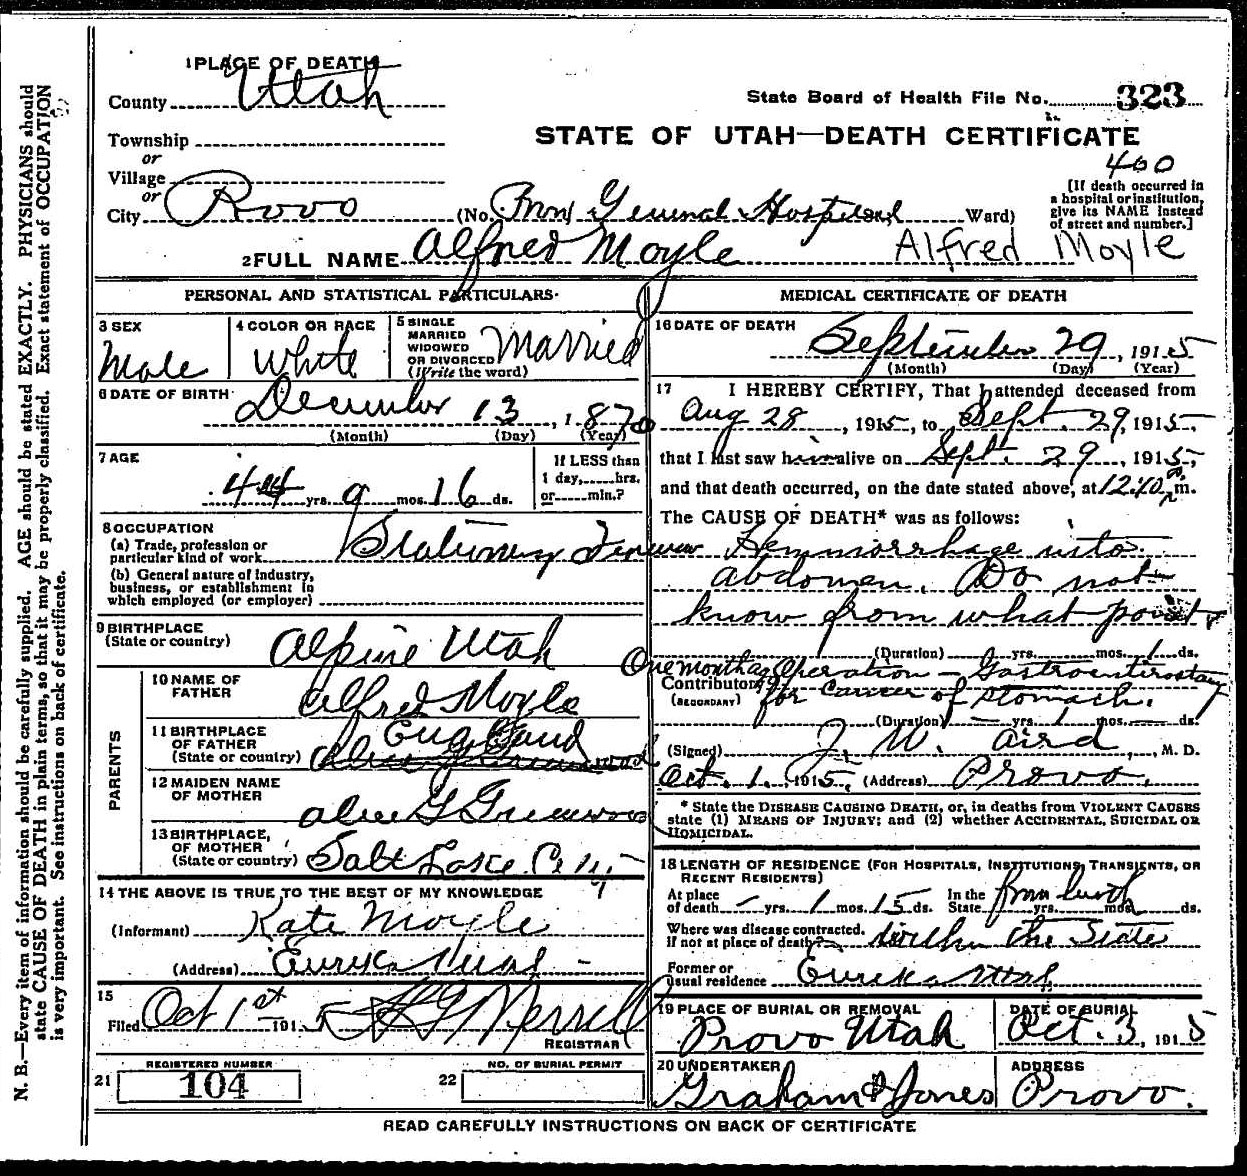 1 PLACE OF DEATH
County Utah
State Board of Health File No. 323
STATE OF UTAH—DEATH CERTIFICATE
Township
or
Village
or
City Provo (No. Prov General Hospital Ward)
400
[If death occurred in a hospital or institution, give its NAME instead of street and number.]
2 FULL NAME Alfred Moyle Alfred Moyle
PERSONAL AND STATISTICAL PARTICULARS
3 SEX Male
4 COLOR OR RACE White
5 SINGLE MARRIED WIDOWED OR DIVORCED (Write the word) Married
6 DATE OF BIRTH December 13, 1870
(Month) (Day) (Year)
7 AGE 44 yrs. 9 mos. 16 ds.
If LESS than 1 day, hrs. or min.?
8 OCCUPATION
(a) Trade, profession or particular kind of work Stationary
(b) General nature of Industry, business, or establishment in which employed (or employer)
9 BIRTHPLACE (State or country) Alpine Utah
PARENTS
10 NAME OF FATHER Alfred Moyle
11 BIRTHPLACE OF FATHER (State or country) England
12 MAIDEN NAME OF MOTHER Alice G Greenwood
13 BIRTHPLACE, OF MOTHER (State or country) Salt Lake City
14 THE ABOVE IS TRUE TO THE BEST OF MY KNOWLEDGE
(Informant) Kate Moyle
(Address) Eureka Utah
15
Filed Oct 1st 1915 Merrell
REGISTRAR
REGISTERED NUMBER
21 104
NO. OF BURIAL PERMIT
22
MEDICAL CERTIFICATE OF DEATH
16 DATE OF DEATH
September 29, 1915
(Month) (Day) (Year)
17 I HEREBY CERTIFY, That I attended deceased from
Aug 28, 1915, to Sept. 29, 1915,
that I last saw him alive on Sept. 29, 1915,
and that death occurred, on the date stated above, at 12:40 P m.
The CAUSE OF DEATH* was as follows:
Hemmorrhage into
abdomen. Do not
know from what point
(Duration) yrs. mos. 1 ds.
One month ago Operation – Gastroenterostomy
Contributory (SECONDARY) for cancer of stomach.
(Duration) — yrs. 1 mos. — ds.
(Signed) J. W. Aird, M. D.
Oct. 1. 1915, (Address) Provo.
* State the DISEASE CAUSING DEATH, or, in deaths from VIOLENT CAUSES
state (1) MEANS OF INJURY; and (2) whether ACCIDENTAL, SUICIDAL OR
HOMICIDAL.
18 LENGTH OF RESIDENCE (FOR HOSPITALS, INSTITUTIONS, TRANSIENTS, OR
RECENT RESIDENTS)
At place of death — yrs. 1 mos. 15 ds. In the State from birth yrs. mos. ds.
Where was disease contracted. If not at place of death? Within the State
Former or usual residence Eureka Utah
19 PLACE OF BURIAL OR REMOVAL
Provo Utah
DATE OF BURIAL
Oct. 3, 1915
20 UNDERTAKER
Graham & Jones
ADDRESS
Provo.
READ CAREFULLY INSTRUCTIONS ON BACK OF CERTIFICATE
N. B.—Every item of information should be carefully supplied. AGE should be stated EXACTLY. PHYSICIANS should
state CAUSE OF DEATH in plain terms, so that it may be properly classified. Exact statement of OCCUPATION
is very important. See instructions on back of certificate.